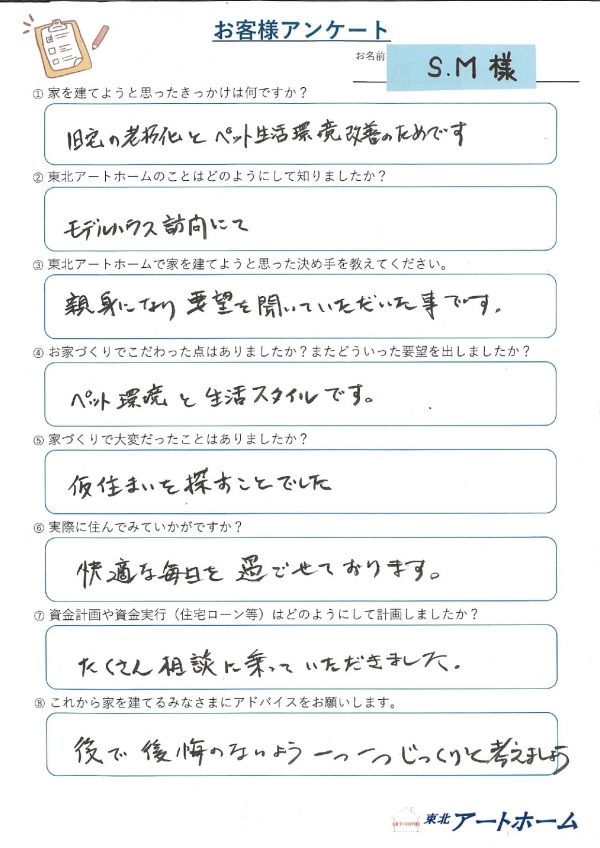 お客様アンケート
お名前 S.M 様
① 家を建てようと思ったきっかけは何ですか？
旧宅の老朽化とペット生活環境改善のためです
② 東北アートホームのことはどのようにして知りましたか？
モデルハウス訪問にて
③ 東北アートホームで家を建てようと思った決め手を教えてください。
親身になり要望を聞いていただいた事です。
④ お家づくりでこだわった点はありましたか？またどういった要望を出しましたか？
ペット環境と生活スタイルです。
⑤ 家づくりで大変だったことはありましたか？
仮住まいを探すことでした
⑥ 実際に住んでみていかがですか？
快適な毎日を過ごせております。
⑦ 資金計画や資金実行（住宅ローン等）はどのようにして計画しましたか？
たくさん相談に乗っていただきました。
⑧ これから家を建てるみなさまにアドバイスをお願いします。
後で後悔のないよう一つ一つじっくりと考えましょう
ART HOME 東北 アートホーム